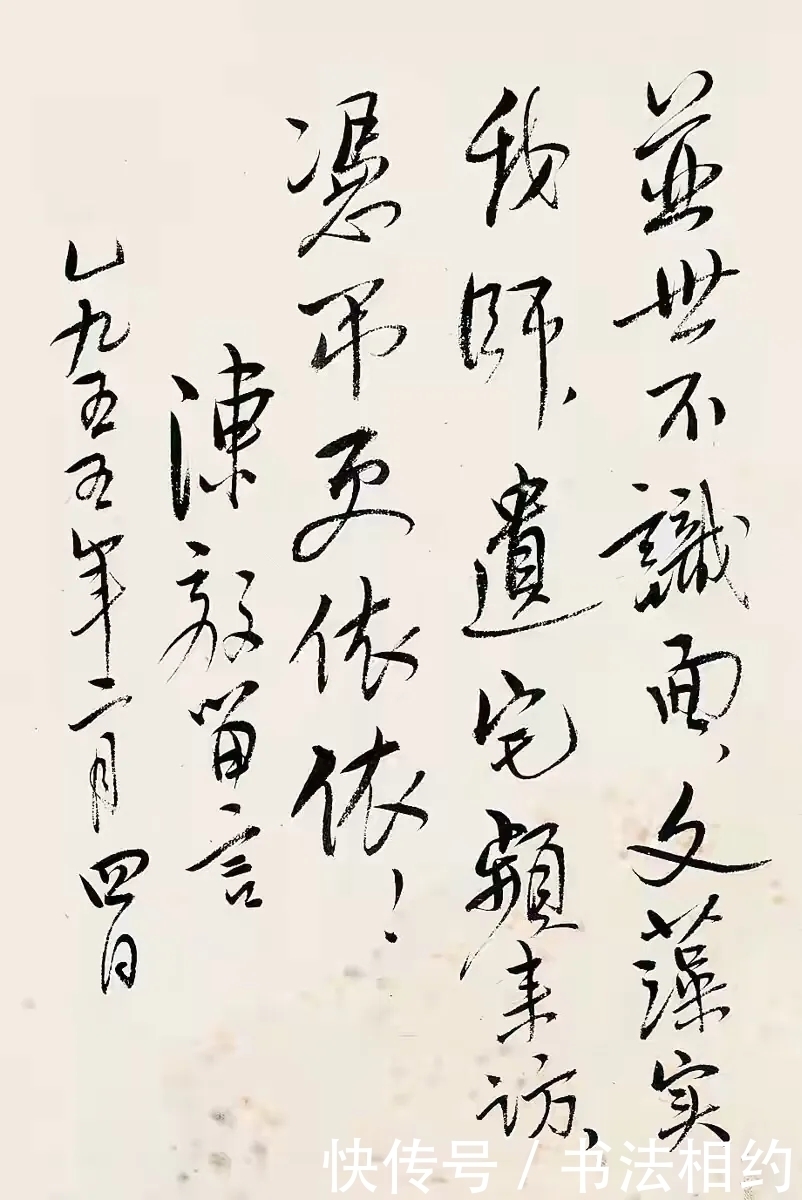 並世不識面、文藻实
我師、遺宅頻来访、
憑吊更依依！
陳毅留言
一九五五年二月四日
快传号 / 书法相约